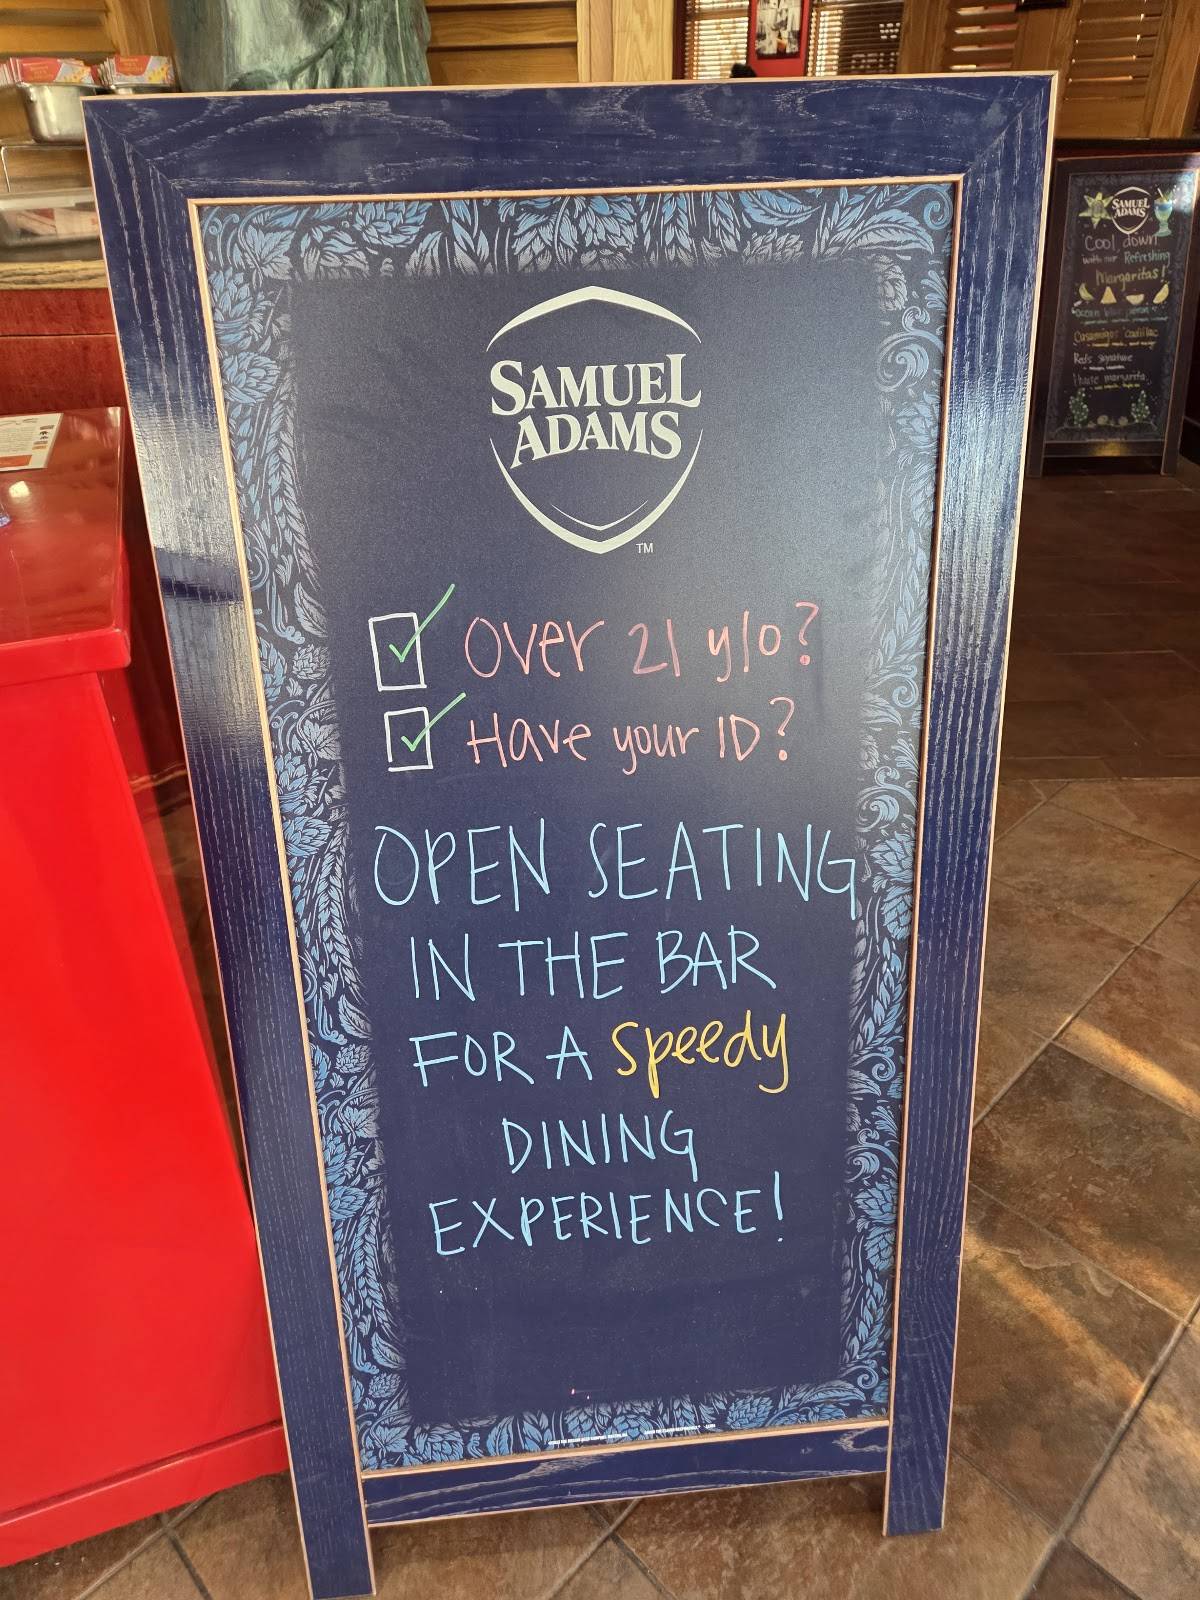 SAMUEL
ADAMS
TM
Over 21 y/o?
Have your ID?
OPEN SEATING
IN THE BAR
FOR A Speedy
DINING
EXPERIENCE!
SAMUEL
ADAMS
Cool down
with our Refreshing
Margaritas!
Casamigos cadillac
Red's signature
House margarita